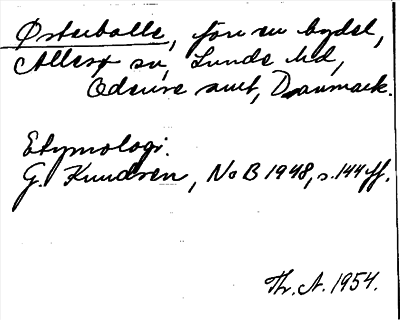 Østerballe, förr en bydel,
Allesø sn, Lunde hd,
Odense amt, Danmark.
Etymologi.
G. Knudsen, NoB 1948, s. 144 ff.
Th. A. 1954.